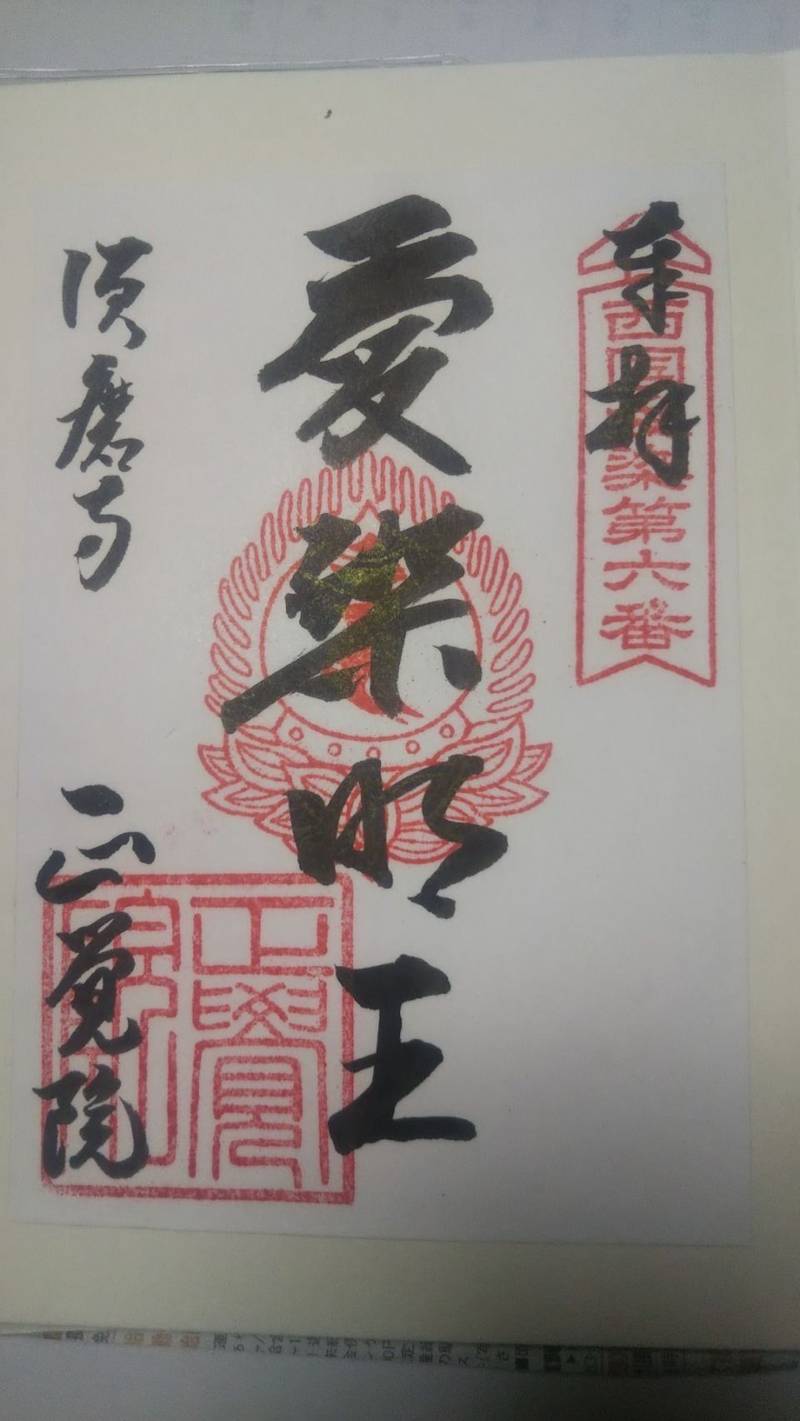 奉拝
西国愛染第六番
愛染明王
須磨寺
正覚院
正覺院印